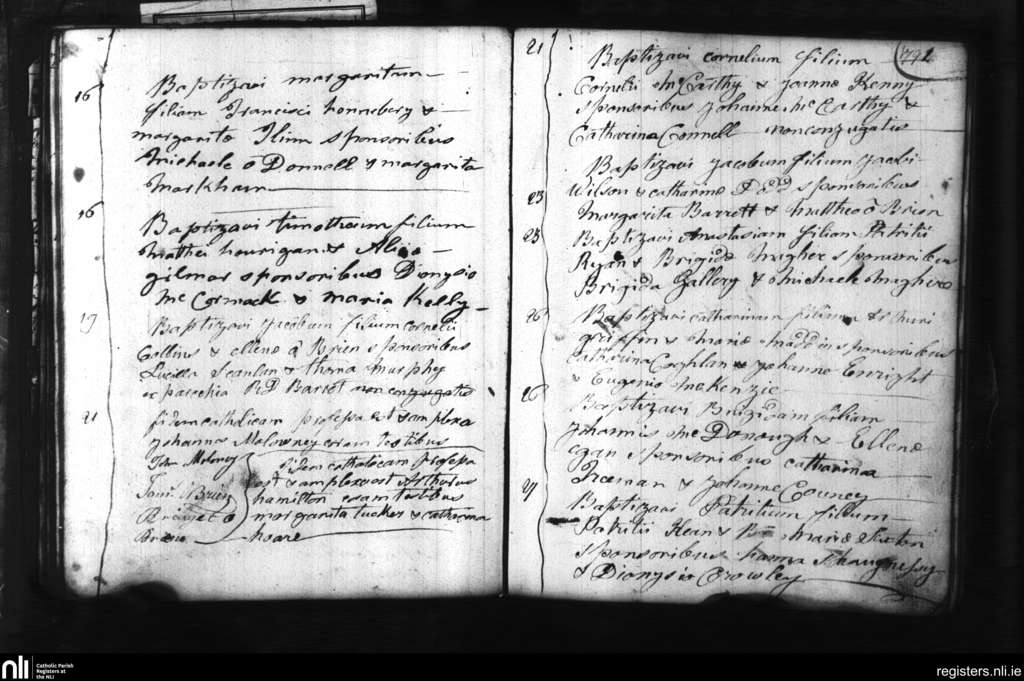 16 Baptizavi margaritam
filiam Francisci honneberg &
margarita Ilinn sponsoribus
Michaele o Donnell & margarita
Markham
16 Baptizavi timotheum filium
Matthei hourigan & Alice
gilmar sponsoribus Dionysio
Mc Cormack & maria Kelly
19 Baptizavi Jacobum filium Cornelii
Collins & ellene o Brien sponsoribus
Lucilla Scanlan & thoma Murphy
ex parochia R.D. Barret non conjugatis
21 fidem catholicam professa est & amplexa
Johanna Molowney coram testibus
Jon Molony
Jams Brien
Bridget o
Brien
fidem catholicam professus
est & amplexus est Arthurus
hamilton coram testibus
margarita tucker & catharina
hoare
1791
21 Baptizavi cornelium filium
Cornelii McCarthy & Joanne Kenny
sponsoribus Johanne Mc Carthy &
Catharina Connell nonconjugatis
Baptizavi Jacobum filium Jacobi
23 Wilson & catharine sponsoribus
Margarita Barrett & Mattheo o Brien
25 Baptizavi Anastasiam filiam Patritii
Ryan & Brigide Meagher sponsoribus
Brigida Gallery & Michaele
26 Baptizavi catharinam filiam Arthuri
griffin & Marie Madden sponsoribus
Catharina Coghlan & Johanne Enright
& Eugenio McKenzie
26 Baptizavi Brigidam filiam
Johannis Mc Donough & Ellene
egan sponsoribus catharina
Freeman & Johanne Couney
27 Baptizavi Patritium filium
Patritii Kean & Marie Sexton
sponsoribus hanna Shaughnessy
& Dionysio Crowley
nli
Catholic Parish
Registers at
the NLI
registers.nli.ie